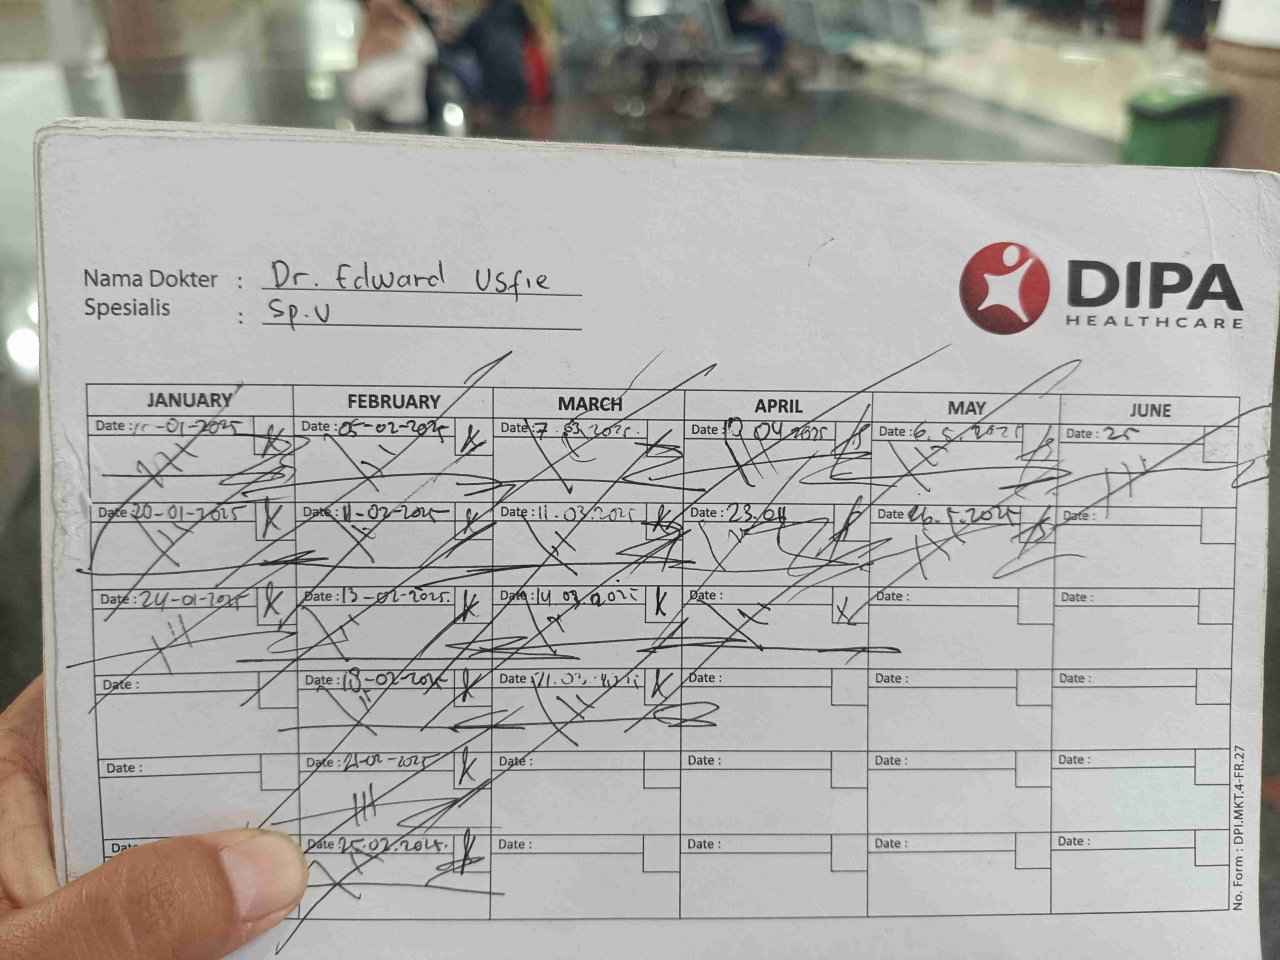 Nama Dokter : Dr. Edward Usfie
Spesialis : Sp.U
DIPA
HEALTHCARE
JANUARY FEBRUARY MARCH APRIL MAY JUNE
Date : -01-2025 K Date : 05-02-2025 K Date : 7.03.2025. K Date : 04 2025 K Date : 6.5.2025 K Date : 25
Date 20-01-2025 K Date : 11-02-2025 K Date : 11.03.2025 K Date : 23.04 K Date 26.5.2025 K Date :
Date : 24-01-2025 K Date : 13-02-2025. K Date : 14 03 2025 K Date : K Date : Date :
Date : Date : 18-02-2025 K Date : 21.03.2025 K Date : Date : Date :
Date : Date : 21-02-2025 K Date : Date : Date : Date :
Date Date 25.02.2025. K Date : Date : Date : Date :
No. Form : DPI.MKT.4-FR.27